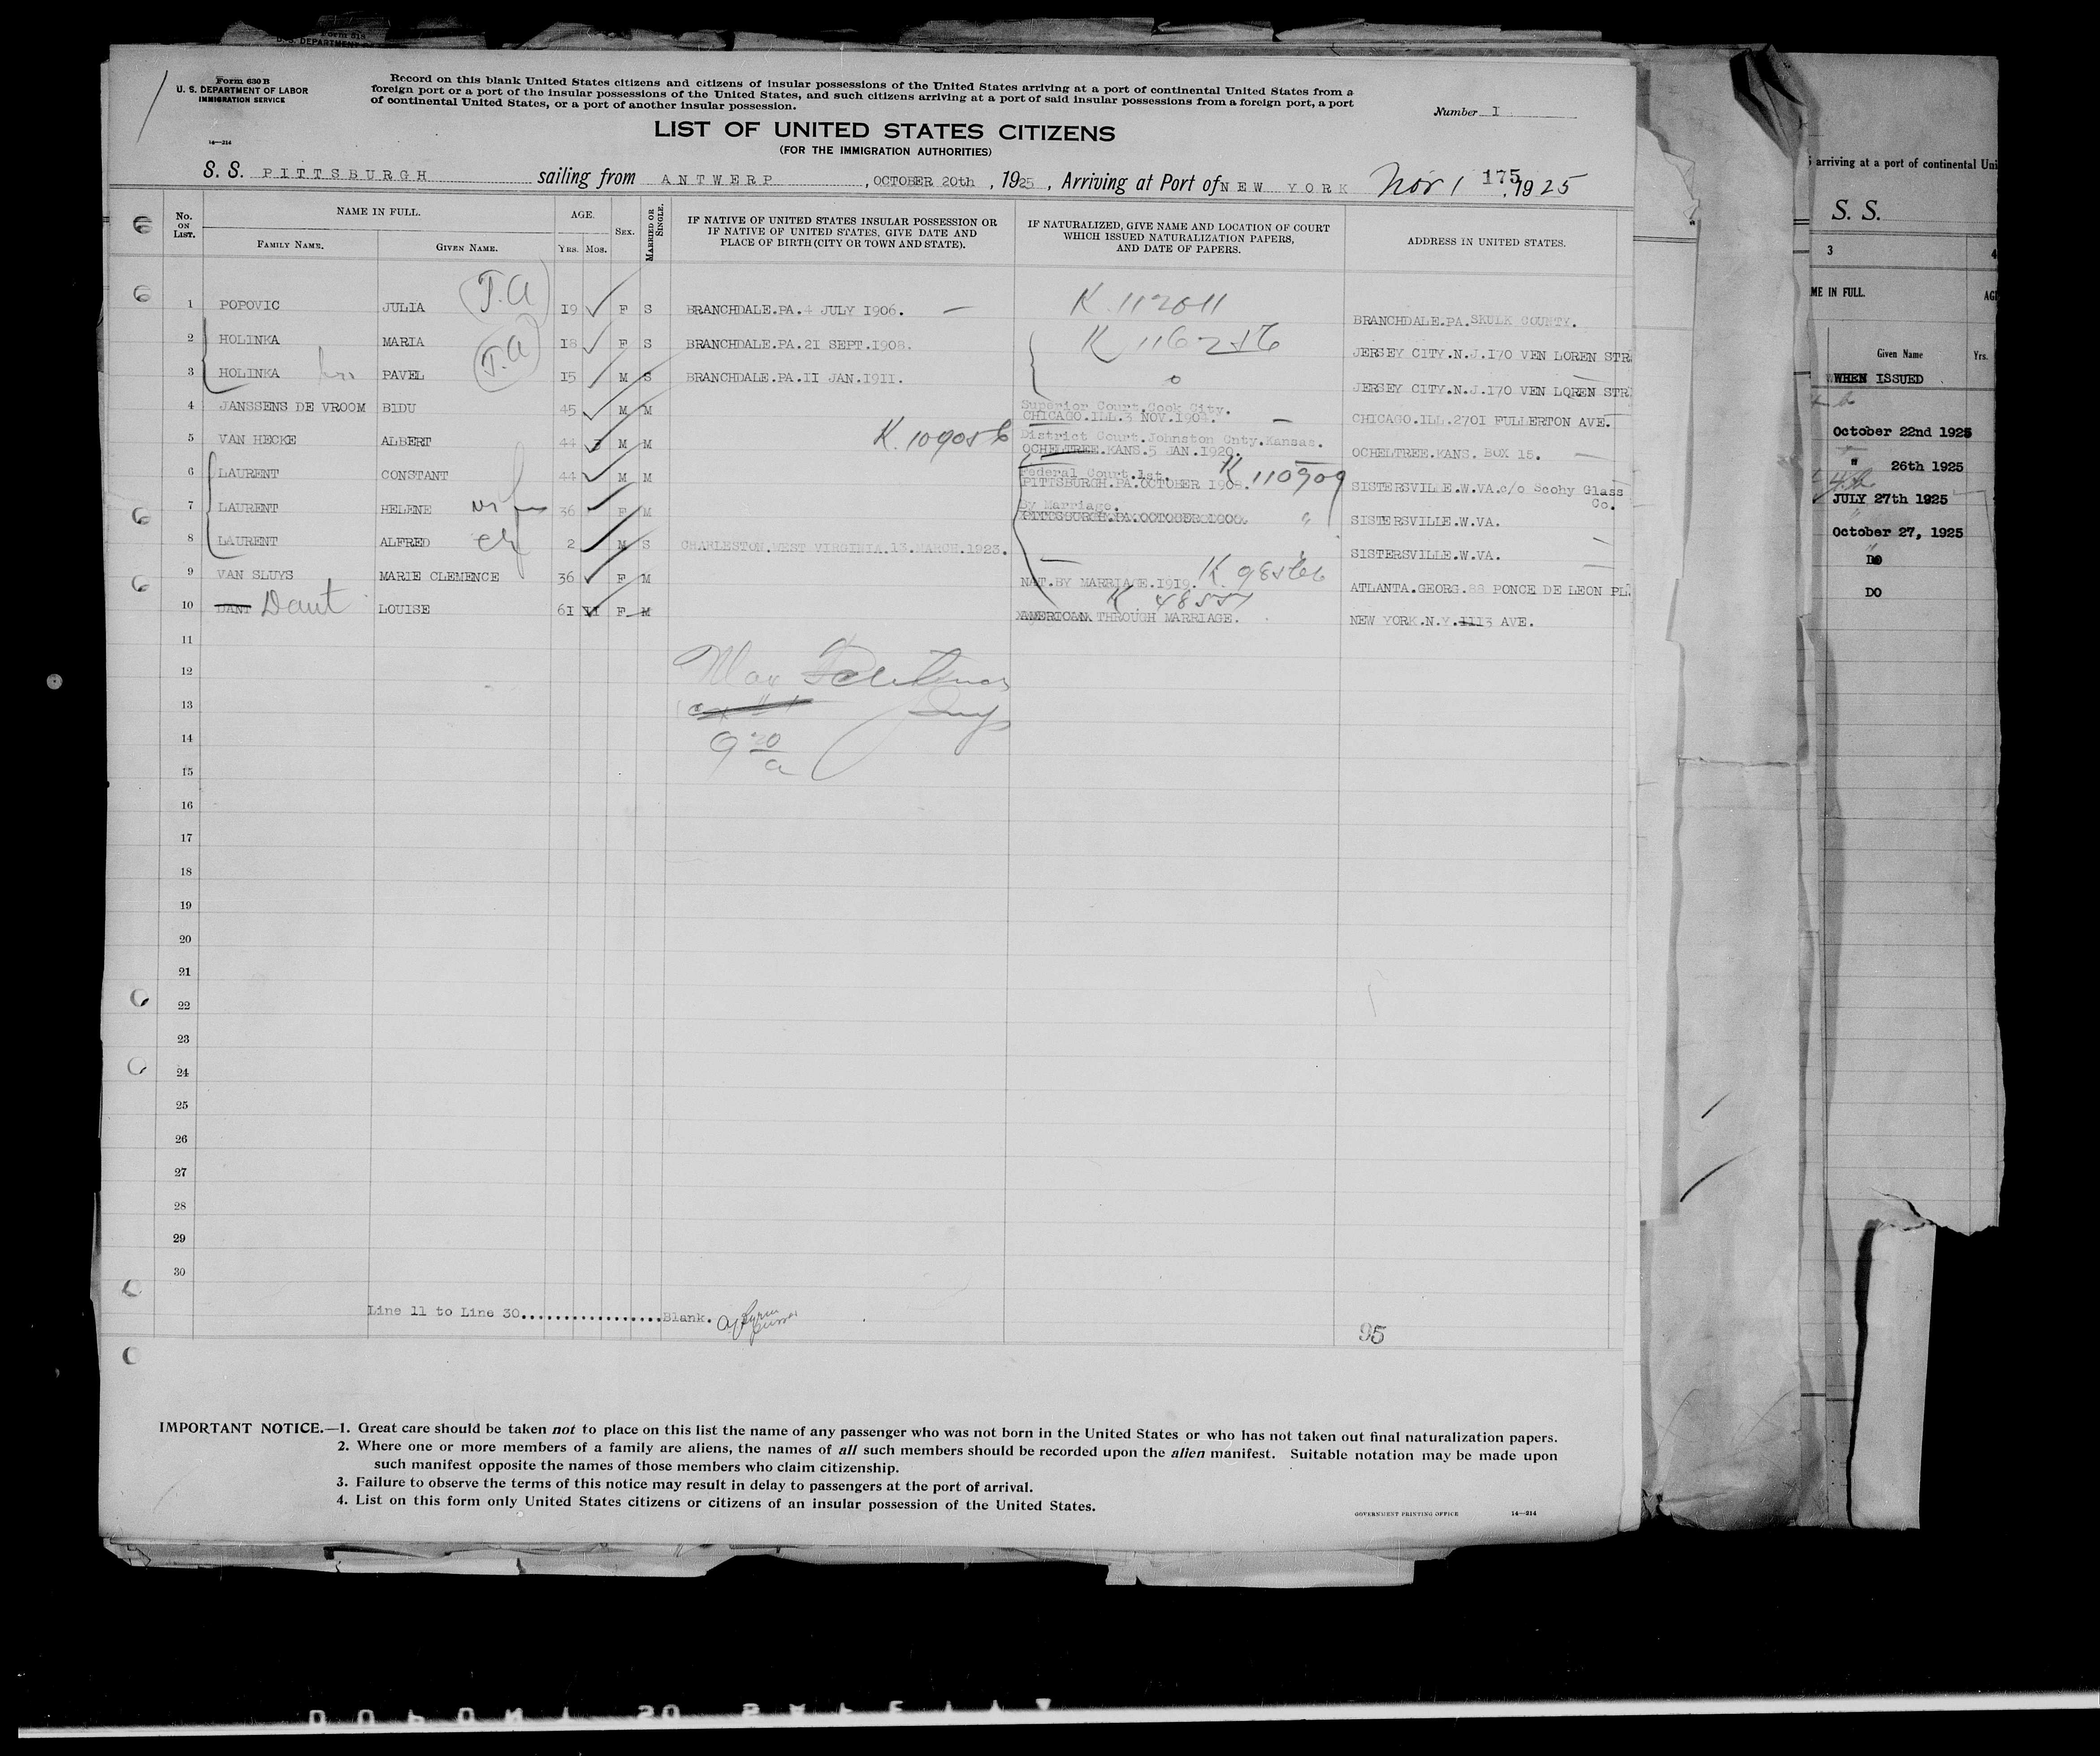 Form 630 B
U. S. DEPARTMENT OF LABOR
IMMIGRATION SERVICE
14—214
Record on this blank United States citizens and citizens of insular possessions of the United States arriving at a port of continental United States from a
foreign port or a port of the insular possessions of the United States, and such citizens arriving at a port of said insular possessions from a foreign port, a port
of continental United States, or a port of another insular possession.
Number I
LIST OF UNITED STATES CITIZENS
(FOR THE IMMIGRATION AUTHORITIES)
S. S. PITTSBURGH sailing from ANTWERP, OCTOBER 20th, 1925, Arriving at Port of NEW YORK Nov 1 175, 1925
No. ON LIST. NAME IN FULL. FAMILY NAME. GIVEN NAME. AGE. YRS. MOS. SEX. MARRIED OR SINGLE.
IF NATIVE OF UNITED STATES INSULAR POSSESSION OR IF NATIVE OF UNITED STATES, GIVE DATE AND PLACE OF BIRTH (CITY OR TOWN AND STATE).
IF NATURALIZED, GIVE NAME AND LOCATION OF COURT WHICH ISSUED NATURALIZATION PAPERS, AND DATE OF PAPERS.
ADDRESS IN UNITED STATES.
1 POPOVIC JULIA T.A 19 F S BRANCHDALE.PA.4 JULY 1906. — K.112011 BRANCHDALE.PA.SKULK COUNTY.
2 HOLINKA MARIA T.A 18 F S BRANCHDALE.PA.21 SEPT.1908. K 116256 JERSEY CITY.N.J.I70 VEN LOREN STR
3 HOLINKA bro PAVEL I5 M S BRANCHDALE.PA.II JAN.1911. JERSEY CITY.N.J.I70 VEN LOREN STR
4 JANSSENS DE VROOM BIDU 45 M M Superior Court.Cook City. CHICAGO.ILL.3 NOV.190 CHICAGO.ILL.2701 FULLERTON AVE.
5 VAN HECKE ALBERT 44 3 M M K.109056 District Court.Johnston Cnty.Kansas. OCHELTREE.KANS.5 JAN.1920. OCHELTREE.KANS. BOX 15.
6 LAURENT CONSTANT 44 M M Federal Court.1st. PITTSBURGH.PA.OCTOBER 1908. K 110909 SISTERSVILLE.W.VA.c/o Scohy Glass Co.
7 LAURENT HELENE wf 36 F M By Marriage. SISTERSVILLE.W.VA.
8 LAURENT ALFRED ch 2 M S CHARLESTON.WEST VIRGINIA.13.MARCH.1923. SISTERSVILLE.W.VA.
9 VAN SLUYS MARIE CLEMENCE 36 F M NAT.BY MARRIAGE.1919. K. 98566 ATLANTA.GEORG.88 PONCE DE LEON PL.
10 DANT Daut LOUISE 61 F M K 48557 AMERICAN THROUGH MARRIAGE. NEW YORK.N.Y.1113 AVE.
11
12 Max
13
14 9 30 a
15
16
17
18
19
20
21
22
23
24
25
26
27
28
29
30
Line 11 to Line 30.................Blank.
95
IMPORTANT NOTICE.—1. Great care should be taken not to place on this list the name of any passenger who was not born in the United States or who has not taken out final naturalization papers.
2. Where one or more members of a family are aliens, the names of all such members should be recorded upon the alien manifest. Suitable notation may be made upon
such manifest opposite the names of those members who claim citizenship.
3. Failure to observe the terms of this notice may result in delay to passengers at the port of arrival.
4. List on this form only United States citizens or citizens of an insular possession of the United States.
GOVERNMENT PRINTING OFFICE 14—214
arriving at a port of continental Uni
S. S.
3 4
ME IN FULL. AGE
Given Name Yrs.
WHEN ISSUED
October 22nd 1925
" 26th 1925
JULY 27th 1925
October 27, 1925
DO
DO